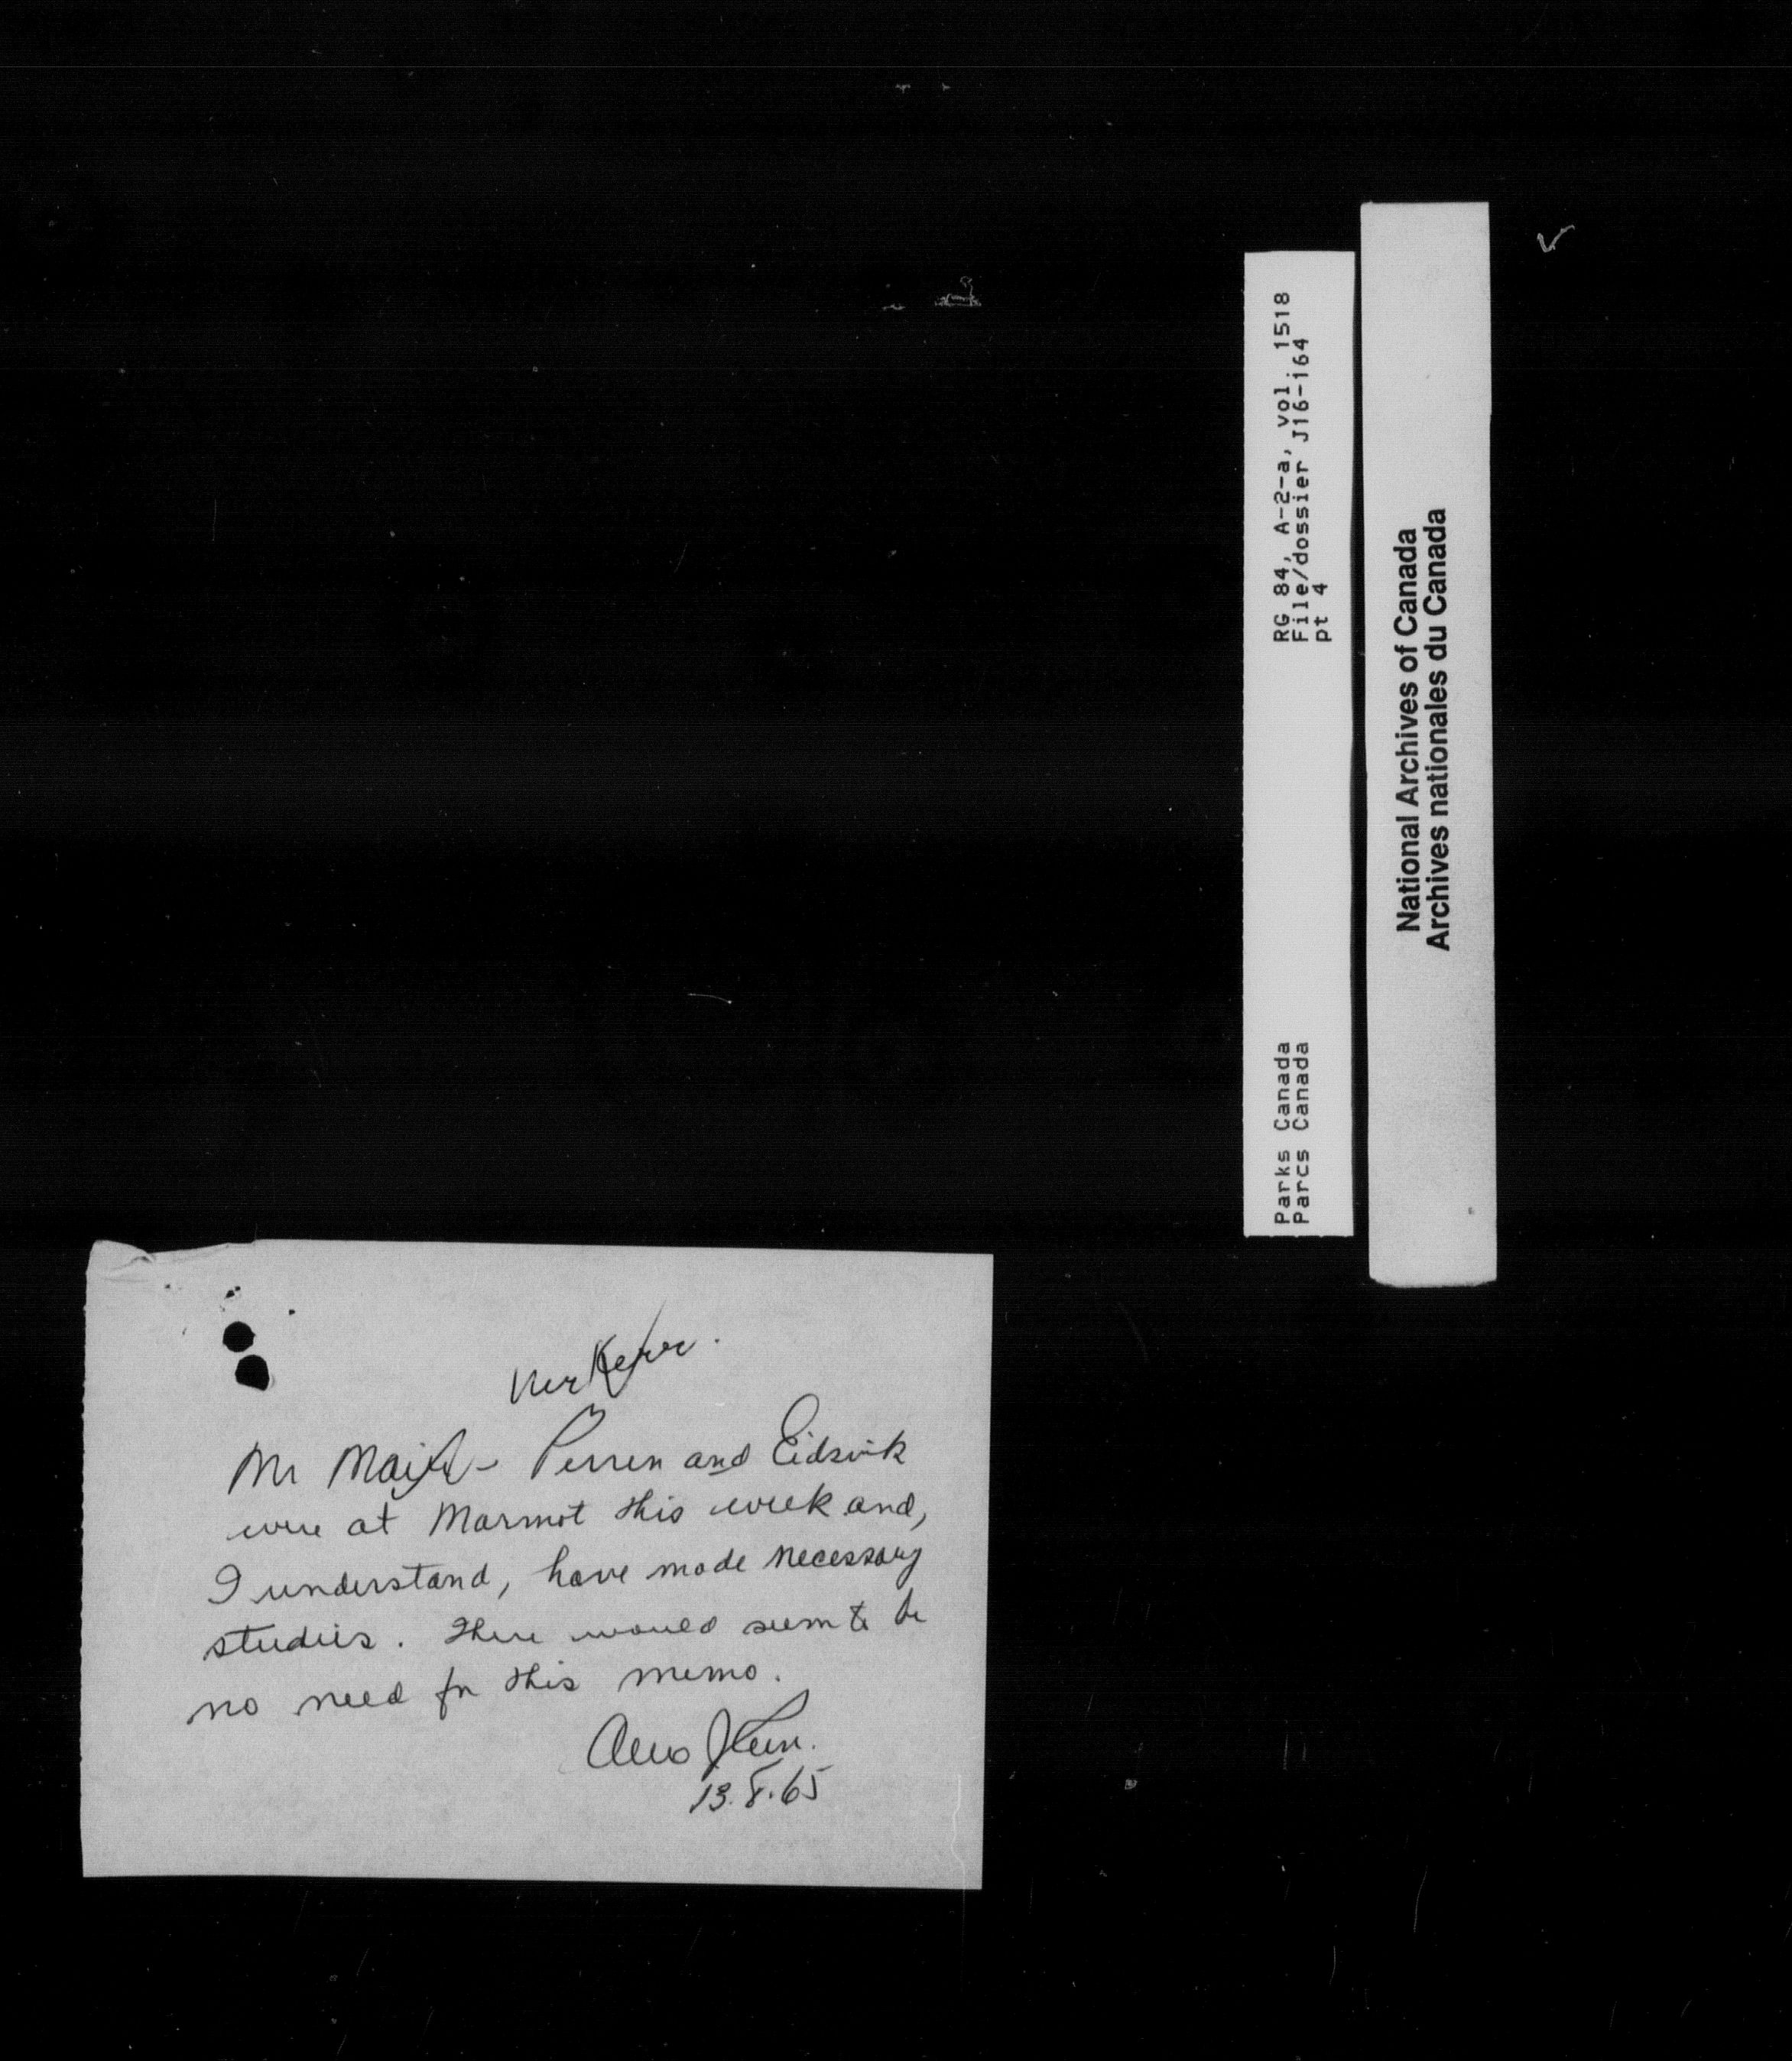 RG 84, A-2-a, vol. 1518
File/dossier J16-164
pt 4
Parks Canada
Parcs Canada
National Archives of Canada
Archives nationales du Canada
Kerr.
Mr - Perren and Eidsvik
were at Marmot this week and,
I understand, have made necessary
studies. There would seem to be
no need for this memo.
13.8.65